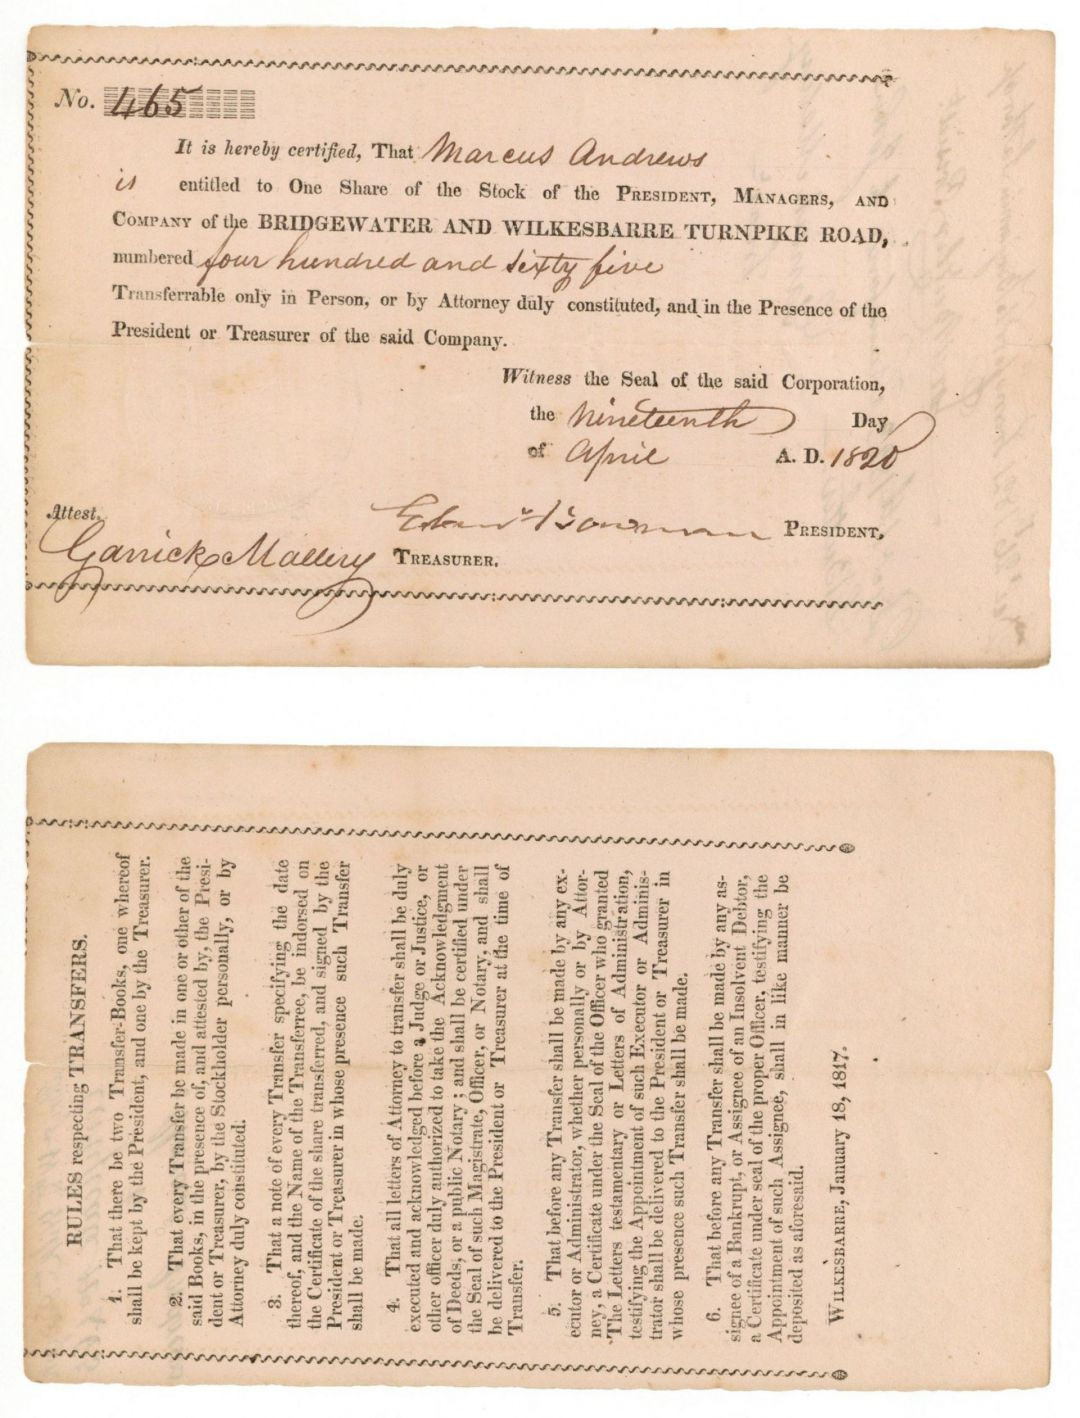 No. 465
It is hereby certified, That Marcus Andrews
is entitled to One Share of the Stock of the PRESIDENT, MANAGERS, AND
COMPANY of the BRIDGEWATER AND WILKESBARRE TURNPIKE ROAD,
numbered four hundred and sixty five
Transferrable only in Person, or by Attorney duly constituted, and in the Presence of the
President or Treasurer of the said Company.
Witness the Seal of the said Corporation,
the Nineteenth Day
of April A. D. 1820
Attest,
Ebenr Bowman PRESIDENT,
Garrick Mallery TREASURER.
RULES respecting TRANSFERS.
1. That there be two Transfer-Books, one whereof
shall be kept by the President, and one by the Treasurer.
2. That every Transfer be made in one or other of the
said Books, in the presence of, and attested by, the Presi-
dent or Treasurer, by the Stockholder personally, or by
Attorney duly constituted.
3. That a note of every Transfer specifying the date
thereof, and the Name of the Transferree, be indorsed on
the Certificate of the share transferred, and signed by the
President or Treasurer in whose presence such Transfer
shall be made.
4. That all letters of Attorney to transfer shall be duly
executed and acknowledged before a Judge or Justice, or
other officer duly authorized to take the Acknowledgment
of Deeds, or a public Notary; and shall be certified under
the Seal of such Magistrate, Officer, or Notary, and shall
be delivered to the President or Treasurer at the time of
Transfer.
5. That before any Transfer shall be made by any ex-
ecutor or Administrator, whether personally or by Attor-
ney, a Certificate under the Seal of the Officer who granted
The Letters testamentary or Letters of Administration,
testifying the Appointment of such Executor or Adminis-
trator shall be delivered to the President or Treasurer in
whose presence such Transfer shall be made.
6. That before any Transfer shall be made by any as-
signee of a Bankrupt, or Assignee of an Insolvent Debtor,
a Certificate under seal of the proper Officer, testifying the
Appointment of such Assignee, shall in like manner be
deposited as aforesaid.
WILKESBARRE, January 18, 1817.